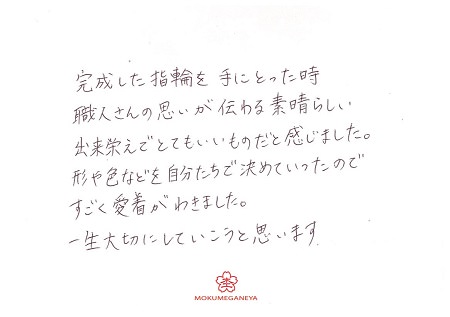 完成した指輪を手にとった時
職人さんの思いが伝わる素晴らしい
出来栄えでとてもいいものだと感じました。
形や色などを自分たちで決めていったので
すごく愛着がわきました。
一生大切にしていこうと思います
MOKUMEGANEYA